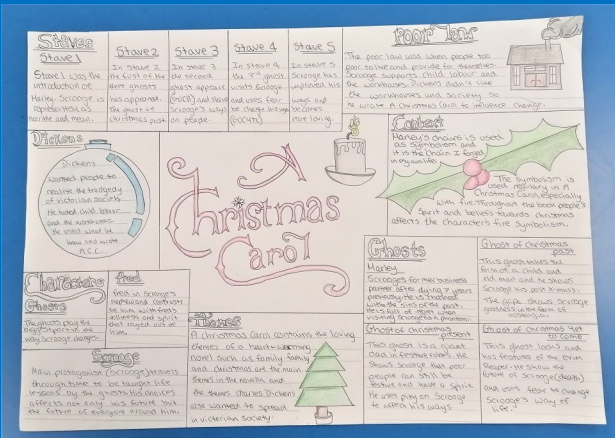 Staves
Stave 1
Stave 1 was the
introduction of
Marley. Scrooge is
represented as
horrible and mean.
Stave 2
In stave 2
the first of the
three ghosts
has appeared.
The ghost of
christmas past
Stave 3
In stave 3
the second
ghost appears
(GOCP) and shows
Scrooge's ways
on people.
Stave 4
In stave 4
the 3rd ghost
visits Scrooge
and uses fear
(GOCYTC)
Stave 5
In stave 5
Scrooge has
improved his
ways and
becomes
more loving.
Poor law
The poor law was when people too
poor to live and provide for themselves.
Scrooge supports child labour and
the workhouses. Dickens didn't like
the workhouses and society so
he wrote A Christmas Carol to influence change.
Dickens
Dickens
wanted people to
realise the tradgedy
of victorian society.
He hated child labour
and the workhouses.
He used what he
knew and wrote
A.C.C.
A
Christmas
Carol
Context
Marley's chains is used
as symbolism and
it is the chain I forged
in my own life.
The symbolism is
used in A
Christmas Carol, especially
with fire. Throughout the book people's
spirit and beliefs towards christmas
affects the characters fire symbolism.
Characters
Ghosts
The ghosts play the
biggest part in the
way Scrooge changes.
Fred
Fred is Scrooge's
nephew and contrasts
to him with Fred's
and spirit
that rayed out of
him.
Scrooge
Main protagonist (scrooge) travels
through time to be taught life
lessons by the ghosts. His choices
affects not only his future but
the future of everyone around him.
Themes
A Christmas Carol contains the loving
themes of a heart-warming
novel such as family. family
and christmas are the main
themes in the novella and
the themes Charles Dickens
also wanted to spread
in victorian society.
Ghosts
Marley
Scrooge's former business
partner after dying 7 years
previously. He is
with the sins of the past.
He is full of regret when
visiting Scrooge as a phantom.
Ghost of christmas
past
This ghost takes the
form of a child and
old man and he shows
Scrooge his past x-mas's.
The g.o.c.p. shows Scrooge
goodness in the form of
Ghost of christmas
present
This ghost is a giant
clad in festive robes. He
shows Scrooge that poor
people can still be
festive and have a spirit.
He uses pity on Scrooge
to affect his ways
Ghost of christmas yet
to come
This ghost looks and
has features of the Grim
Reaper. He shows the
future of Scrooge (death)
and uses fear to change
Scrooge's way of
life.